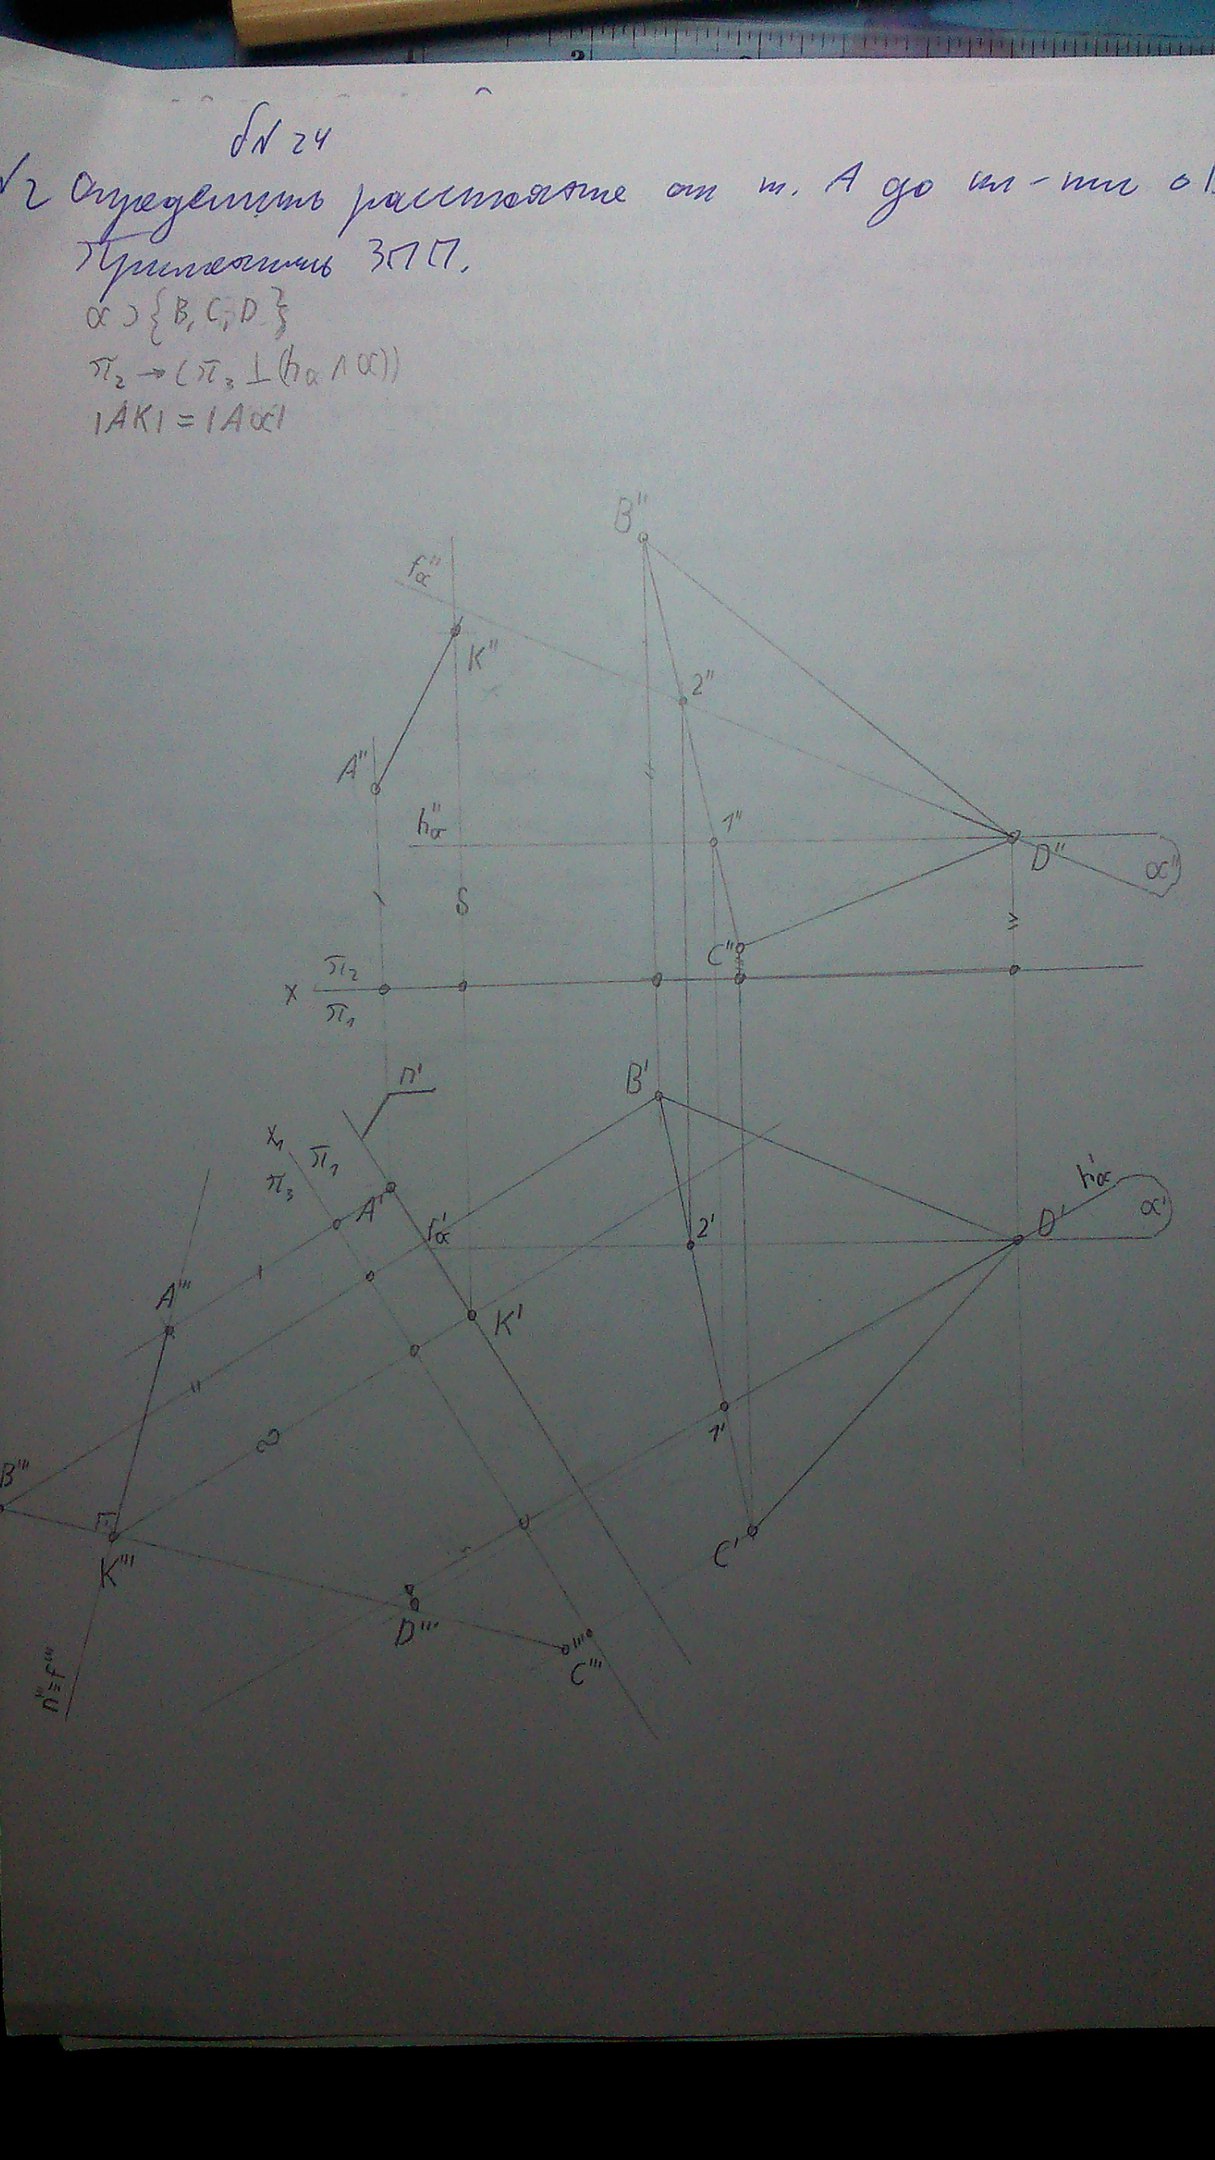 бN 24
№2 Определить расстояние от т. А до пл-сти α
Применить ЗПП.
α ⊃ {B, C, D}
π₂ → (π₃ ⊥ (hα ∧ α))
|AK| = |Aα|
B"
fα"
K"
2"
A"
hα"
1"
D"
α"
C"
x π₂
π₁
n'
B'
x₁ π₁
π₃
A'
fα'
2'
hα'
α'
D'
A'''
K'
1'
B'''
C'
K'''
D'''
C'''
n''' ≡ f'''